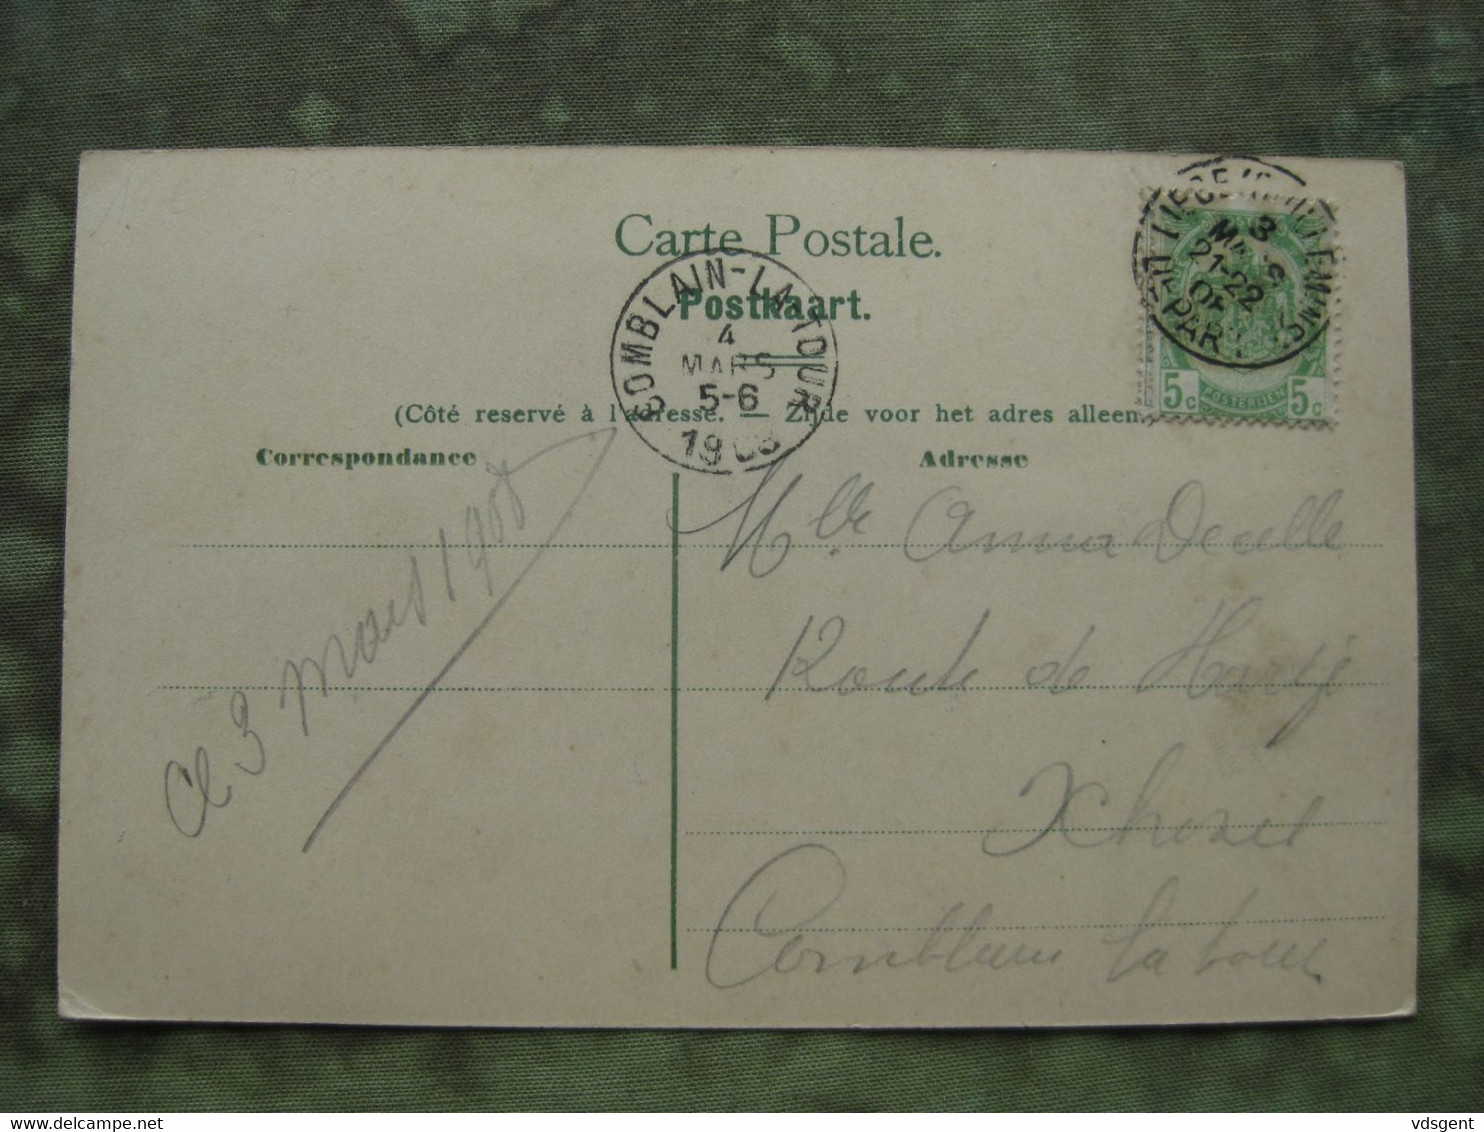 Carte Postale.
Postkaart.
COMBLAIN-LA-TOUR
4
MARS
5-6
1908
LIEGE (GUILLEMINS)
3
MARS
21-22
DEPART
5c POSTERIJEN 5c
(Côté reservé à l'adresse. — Zijde voor het adres alleen.)
Correspondance
Adresse
3 mars 1908
Mlle Anna
Route de
Xhoris
Comblain la tour
delcampe.net
vdsgent